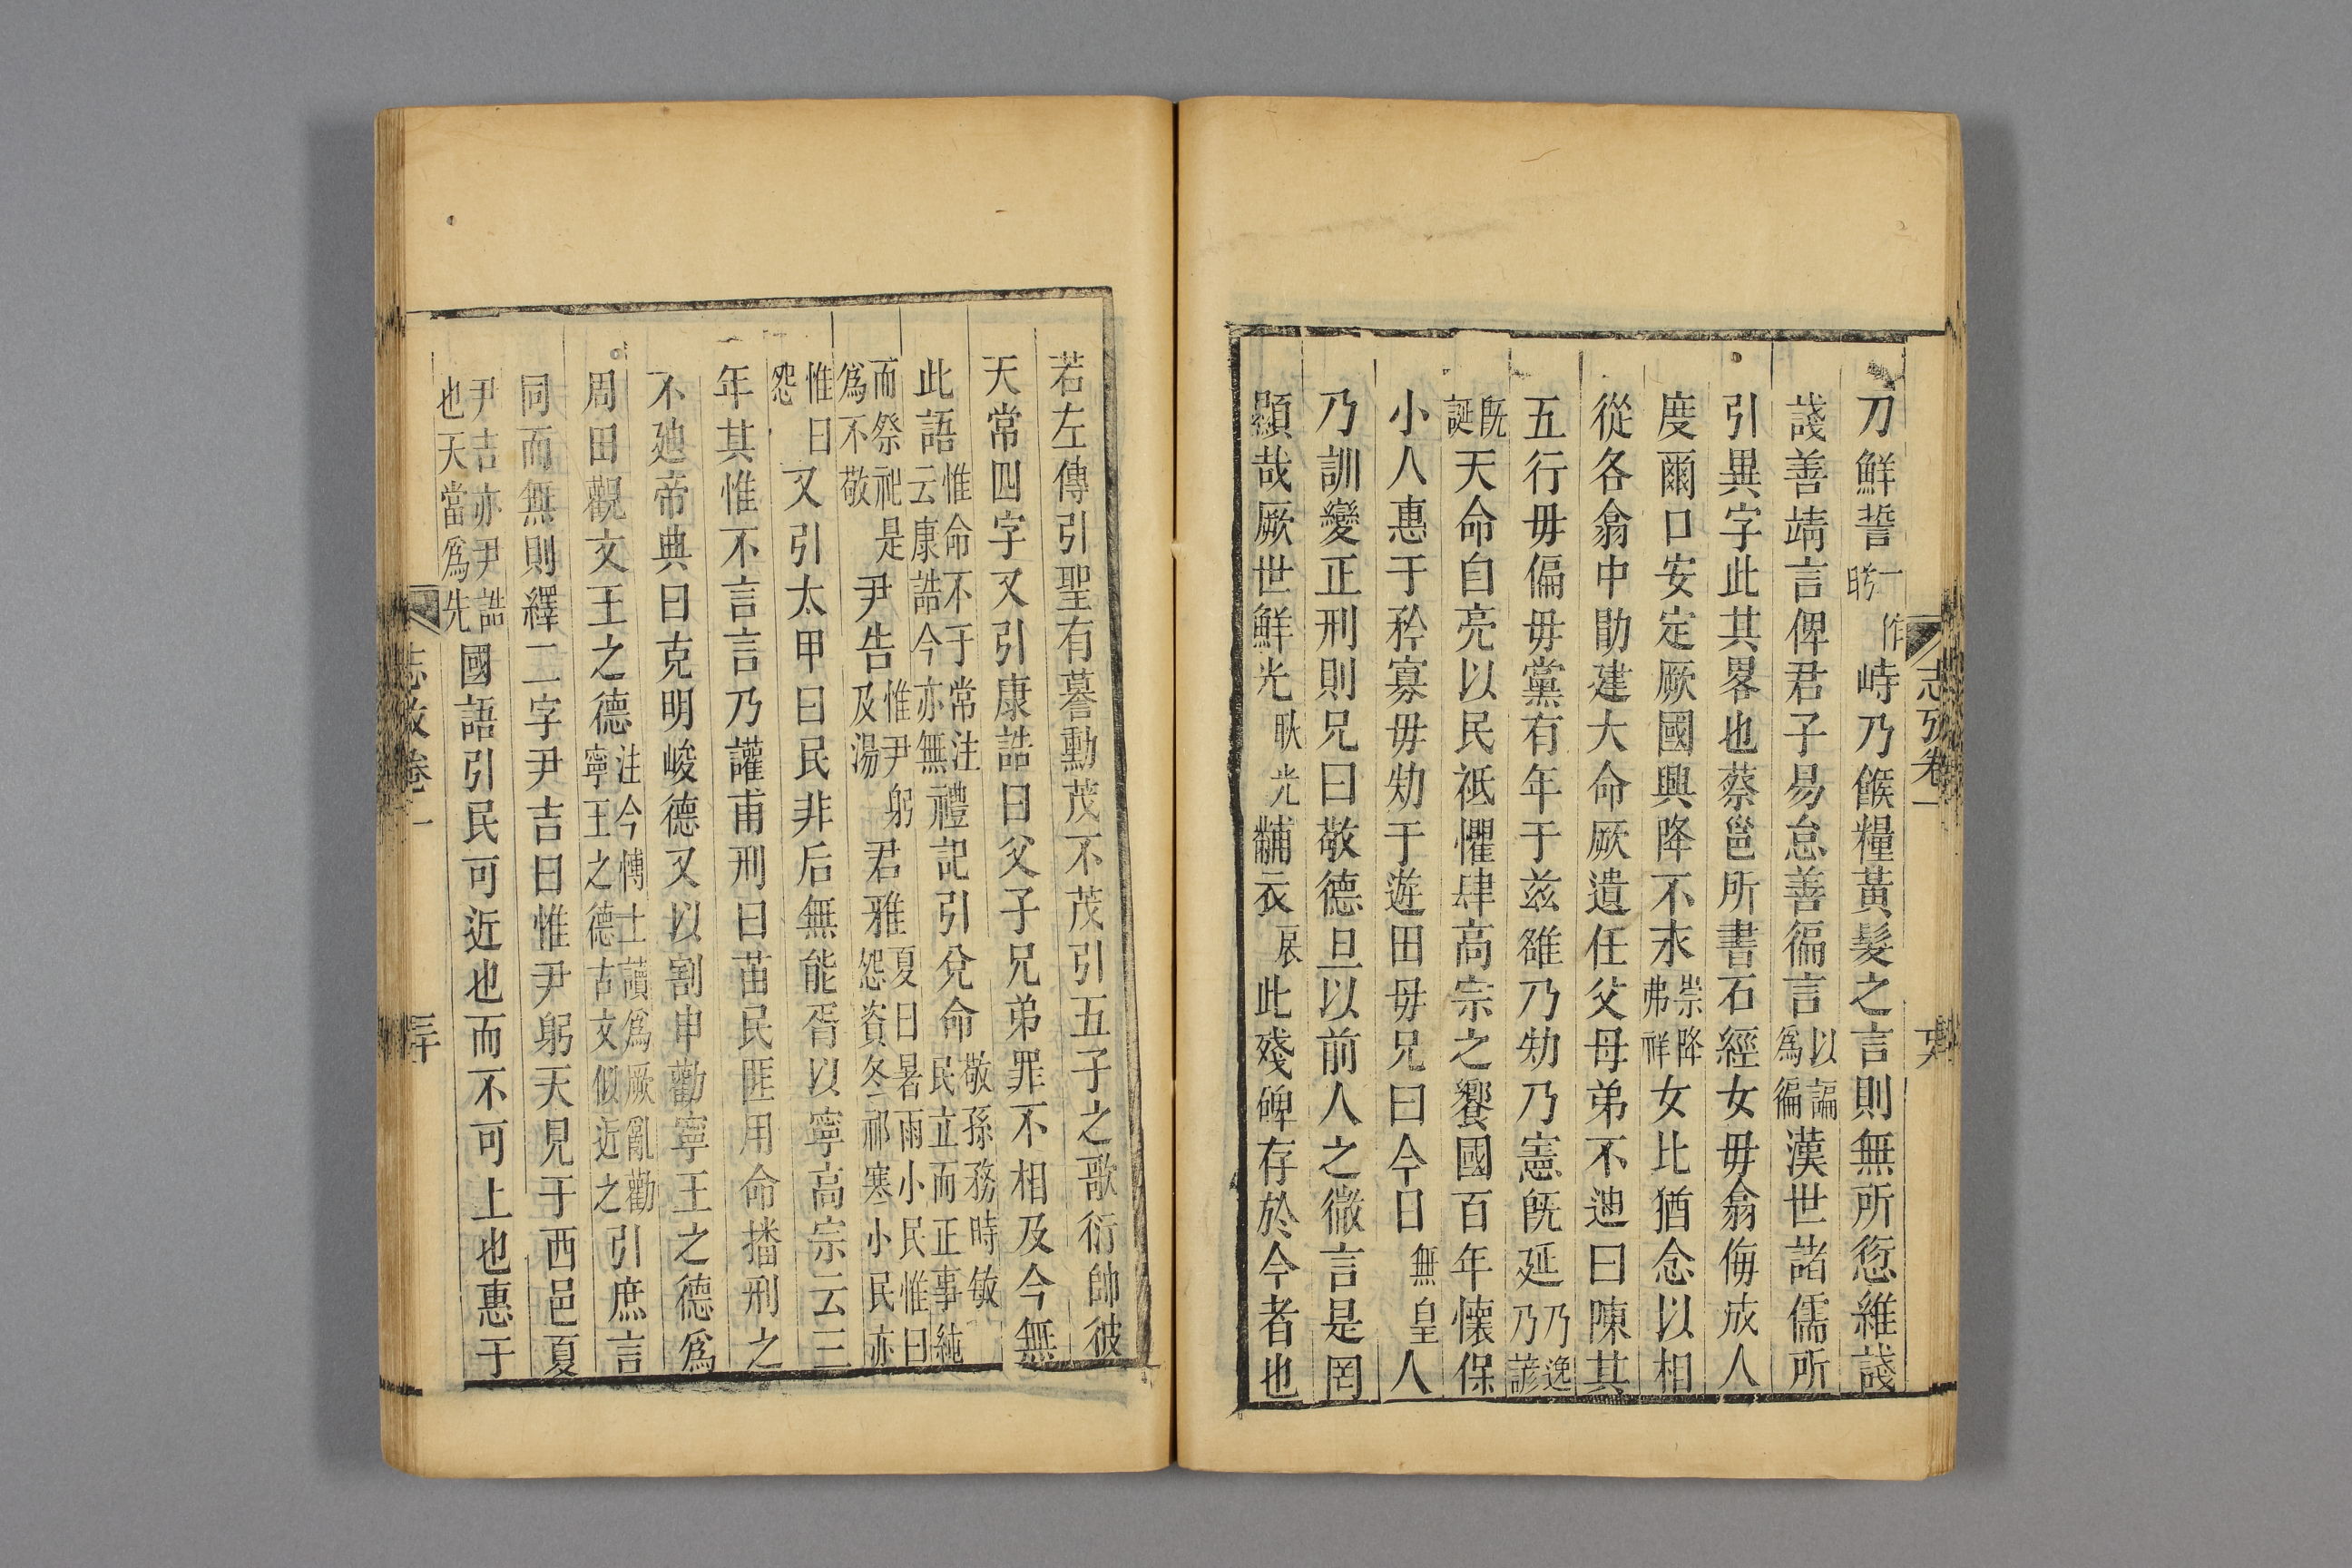 刀鮮誓一作
肹峙乃餱糧黃髮之言則無所愆維諓
諓善竫言俾君子易怠善徧言以諞
爲徧漢世諸儒所
引異字此其畧也蔡邕所書石經女毋翕侮成人
度爾口安定厥國興降不永崇降
弗祥女比猶念以相
從各翕中勛建大命厥遺任父母弟不迪曰陳其
五行毋偏毋黨有年于茲雒乃劮乃憲旣延乃逸
乃諺
旣
誕天命自亮以民祗懼肆高宗之饗國百年懷保
小人惠于矜寡毋劮于遊田毋兄曰今日無皇人
乃訓變正刑則兄曰敬德旦以前人之微言是罔
顯哉厥世鮮光耿光黼衣扆此殘碑存於今者也
志攷卷一
若左傳引聖有謩勳茂不茂引五子之歌衍帥彼
天常四字又引康誥曰父子兄弟罪不相及今無
此語惟命不于常注
云康誥今亦無禮記引兌命敬孫務時敏
民立而正事純
而祭祀是
爲不敬尹告惟尹躬
及湯君雅夏日暑雨小民惟曰
怨資冬祁寒小民亦
惟曰
怨又引太甲曰民非后無能胥以寧高宗云三
年其惟不言言乃讙甫刑曰苗民匪用命播刑之
不迪帝典曰克明峻德又以割申勸寧王之德爲
周田觀文王之德注今博士讀爲厥亂勸
寧王之德古文似近之引庶言
同而無則繹二字尹吉曰惟尹躬天見于西邑夏
尹吉亦尹誥
也天當爲先國語引民可近也而不可上也惠于
志攷卷一